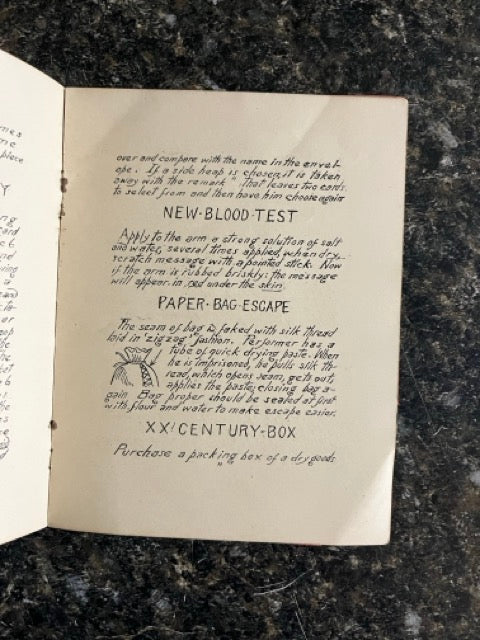 mes
me
place
Y
ng
and
over and compare with the name in the envel-
ope. If a side heap is chosen, it is taken
away with the remark "That leaves two cards
to select from and then have him choose again
NEW·BLOOD·TEST
Apply to the arm a strong solution of salt
and water, several times applied, when dry-
scratch message with a pointed stick. Now
if the arm is rubbed briskly: the message
will appear in red under the skin
PAPER·BAG·ESCAPE
The seam of bag is faked with silk thread
laid in "zigzag" fashion. Performer has a
tube of quick drying paste. When
he is imprisoned, he pulls silk th-
read, which opens seam, gets out,
applies the paste; closing bag a-
gain Bag proper should be sealed at first
with flour and water to make escape easier.
XX! CENTURY·BOX
Purchase a packing box of a dry goods